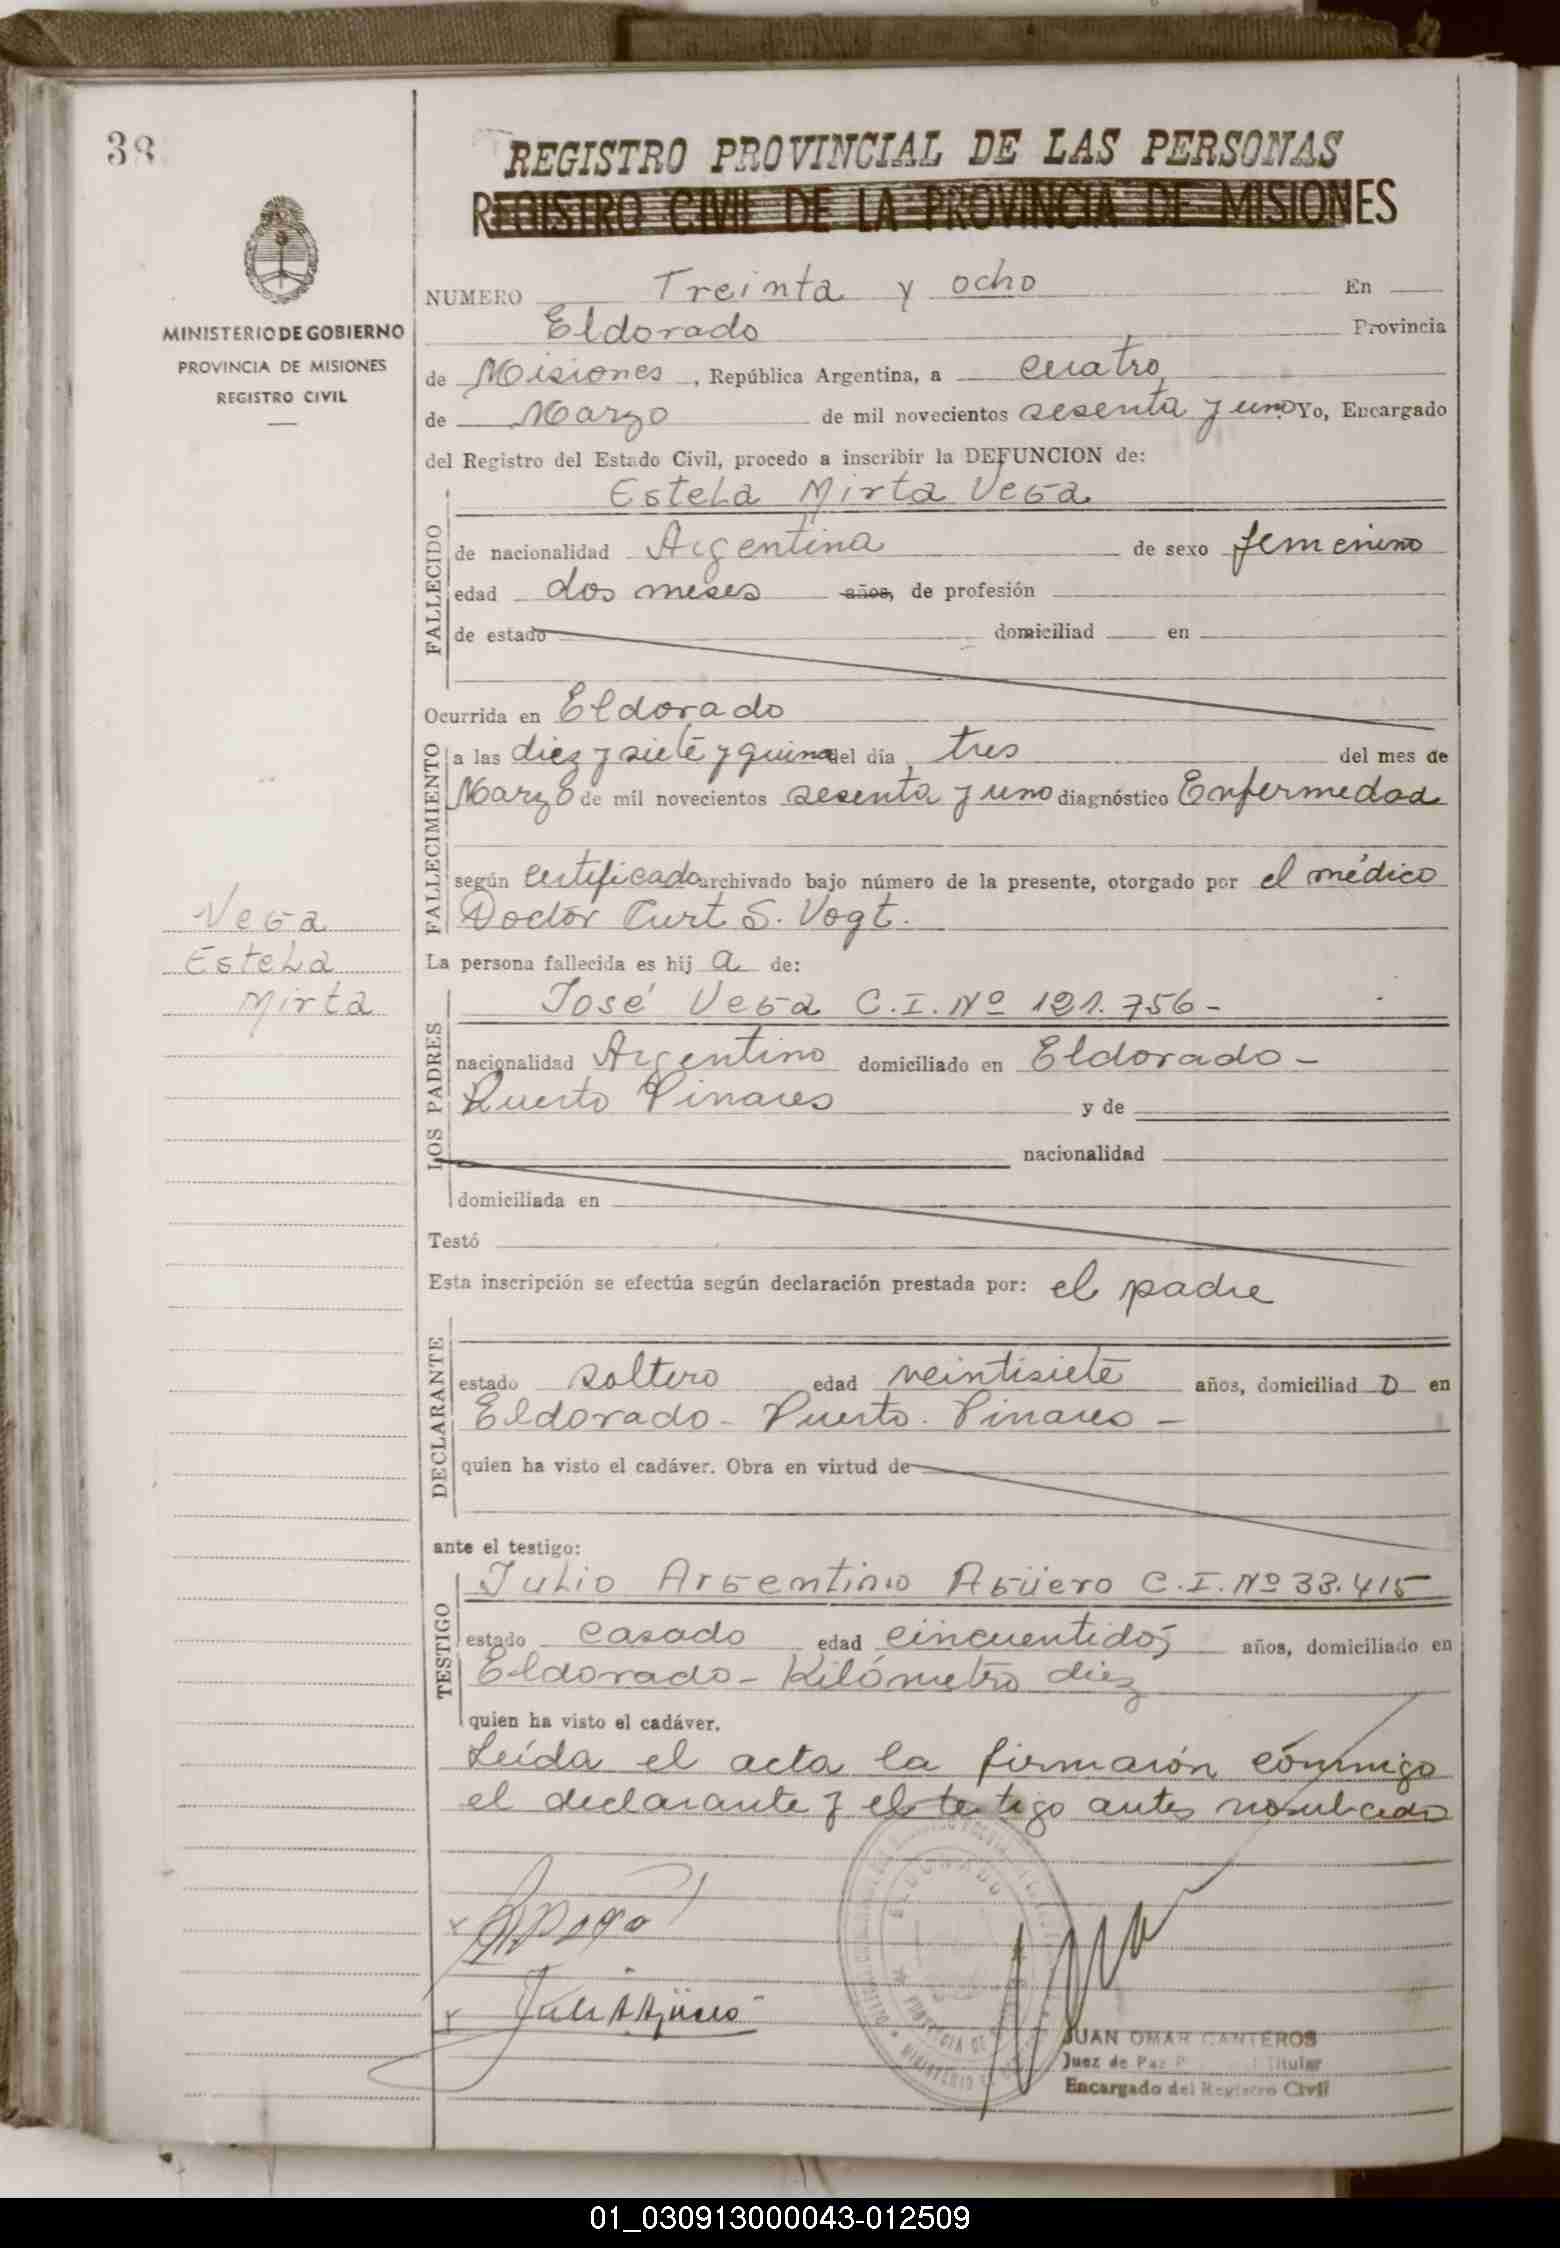 38
REGISTRO PROVINCIAL DE LAS PERSONAS
REGISTRO CIVIL DE LA PROVINCIA DE MISIONES
MINISTERIO DE GOBIERNO
PROVINCIA DE MISIONES
REGISTRO CIVIL
NUMERO Treinta y ocho En
Eldorado Provincia
de Misiones, República Argentina, a cuatro
de Marzo de mil novecientos sesenta y uno Yo, Encargado
del Registro del Estado Civil, procedo a inscribir la DEFUNCION de:
FALLECIDO
Estela Mirta Vega
de nacionalidad Argentina de sexo femenino
edad dos meses años, de profesión
de estado domiciliad en
Ocurrida en Eldorado
FALLECIMIENTO
a las diez y siete y quince del día tres del mes de
Marzo de mil novecientos sesenta y uno diagnóstico Enfermedad
según certificado archivado bajo número de la presente, otorgado por el médico
Doctor Curt S. Vogt.
Vega
Estela
Mirta
La persona fallecida es hij a de:
LOS PADRES
José Vega C.I. Nº 121.756-
nacionalidad Argentino domiciliado en Eldorado -
Puerto Pinares y de
nacionalidad
domiciliada en
Testó
Esta inscripción se efectúa según declaración prestada por: el padre
DECLARANTE
estado soltero edad veintisiete años, domiciliad o en
Eldorado - Puerto Pinares -
quien ha visto el cadáver. Obra en virtud de
ante el testigo:
TESTIGO
Julio Argentino Agüero C.I. Nº 33.415
estado casado edad cincuentidos años, domiciliado en
Eldorado - Kilómetro diez
quien ha visto el cadáver.
Leída el acta la firmarón conmigo
el declarante y el testigo antes
Julio A Agüero
ELDORADO
JUAN OMAR CANTEROS
Juez de Paz Titular
Encargado del Registro Civil
01_030913000043-012509